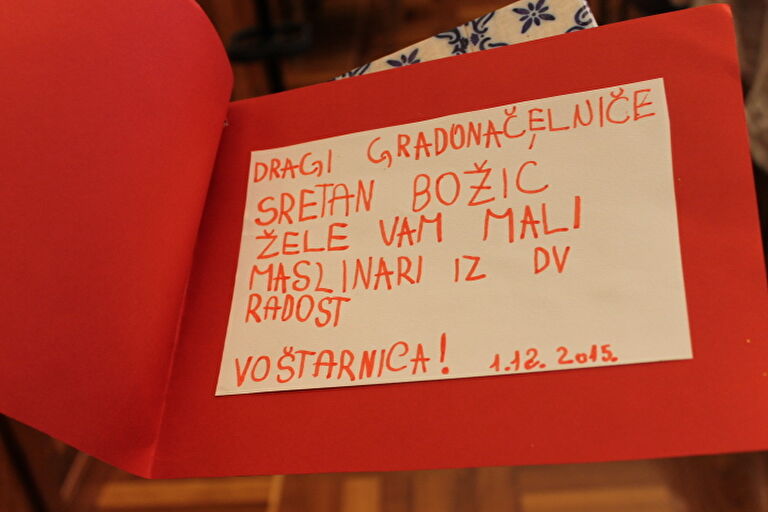 DRAGI GRADONAČELNIČE,
SRETAN BOŽIC
ŽELE VAM MALI
MASLINARI IZ DV
RADOST
VOŠTARNICA! 1.12. 2015.